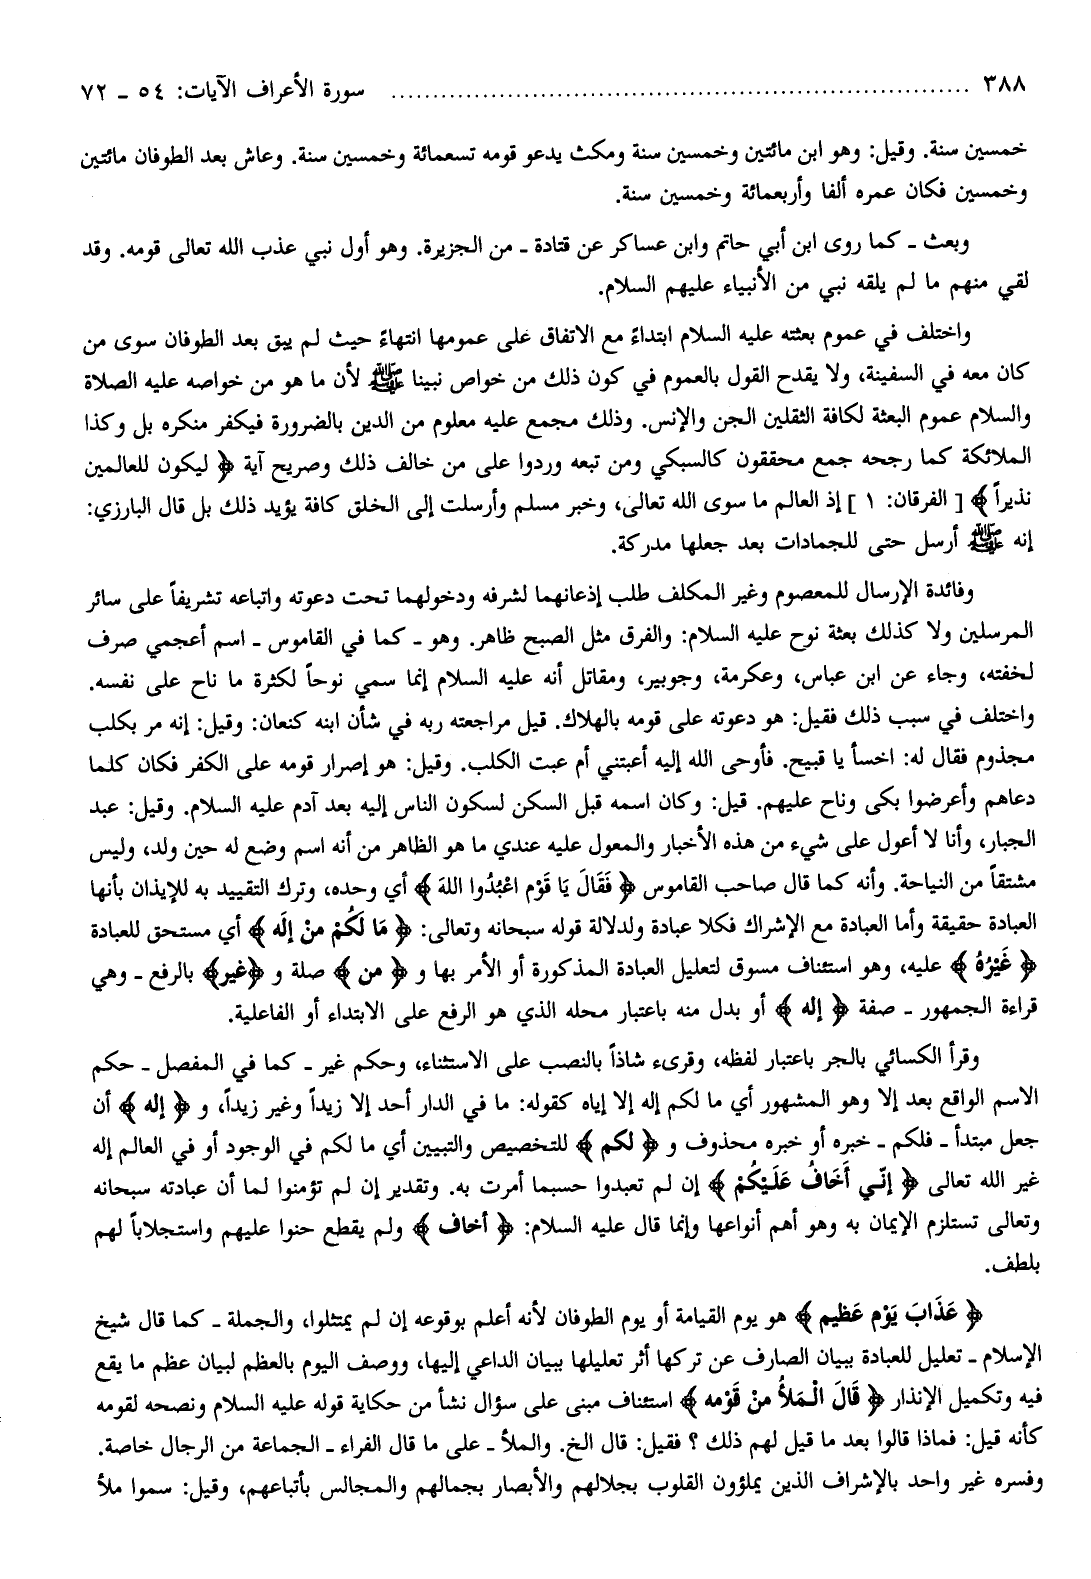 ٣٨٨ ........................................................................ سورة الأعراف الآيات: ٥٤ ـ ٧٢
خمسين سنة. وقيل: وهو ابن مائتين وخمسين سنة ومكث يدعو قومه تسعمائة وخمسين سنة. وعاش بعد الطوفان مائتين
وخمسين فكان عمره ألفا وأربعمائة وخمسين سنة.
وبعث ـ كما روى ابن أبي حاتم وابن عساكر عن قتادة ـ من الجزيرة. وهو أول نبي عذب الله تعالى قومه. وقد
لقي منهم ما لم يلقه نبي من الأنبياء عليهم السلام.
واختلف في عموم بعثته عليه السلام ابتداءً مع الاتفاق على عمومها انتهاءً حيث لم يبق بعد الطوفان سوى من
كان معه في السفينة، ولا يقدح القول بالعموم في كون ذلك من خواص نبينا ﷺ لأن ما هو من خواصه عليه الصلاة
والسلام عموم البعثة لكافة الثقلين الجن والإنس. وذلك مجمع عليه معلوم من الدين بالضرورة فيكفر منكره بل وكذا
الملائكة كما رجحه جمع محققون كالسبكي ومن تبعه وردوا على من خالف ذلك وصريح آية ﴿ ليكون للعالمين
نذيراً ﴾ [ الفرقان: ١ ] إذ العالم ما سوى الله تعالى، وخبر مسلم وأرسلت إلى الخلق كافة يؤيد ذلك بل قال البارزي:
إنه ﷺ أرسل حتى للجمادات بعد جعلها مدركة.
وفائدة الإرسال للمعصوم وغير المكلف طلب إذعانهما لشرفه ودخولهما تحت دعوته واتباعه تشريفاً على سائر
المرسلين ولا كذلك بعثة نوح عليه السلام: والفرق مثل الصبح ظاهر. وهو ـ كما في القاموس ـ اسم أعجمي صرف
لخفته، وجاء عن ابن عباس، وعكرمة، وجوبير، ومقاتل أنه عليه السلام إنما سمي نوحاً لكثرة ما ناح على نفسه.
واختلف في سبب ذلك فقيل: هو دعوته على قومه بالهلاك. قيل مراجعته ربه في شأن ابنه كنعان: وقيل: إنه مر بكلب
مجذوم فقال له: اخسأ يا قبيح. فأوحى الله إليه أعبتني أم عبت الكلب. وقيل: هو إصرار قومه على الكفر فكان كلما
دعاهم وأعرضوا بكى وناح عليهم. قيل: وكان اسمه قبل السكن لسكون الناس إليه بعد آدم عليه السلام. وقيل: عبد
الجبار، وأنا لا أعول على شيء من هذه الأخبار والمعول عليه عندي ما هو الظاهر من أنه اسم وضع له حين ولد، وليس
مشتقاً من النياحة. وأنه كما قال صاحب القاموس ﴿ فَقَالَ يَا قَوْمِ اعْبُدُوا اللهَ ﴾ أي وحده، وترك التقييد به للإيذان بأنها
العبادة حقيقة وأما العبادة مع الإشراك فكلا عبادة ولدلالة قوله سبحانه وتعالى: ﴿ مَا لَكُمْ مِنْ إِلَه ﴾ أي مستحق للعبادة
﴿ غَيْرُهُ ﴾ عليه، وهو استئناف مسوق لتعليل العبادة المذكورة أو الأمر بها و ﴿ من ﴾ صلة و ﴿غير﴾ بالرفع ـ وهي
قراءة الجمهور ـ صفة ﴿ إله ﴾ أو بدل منه باعتبار محله الذي هو الرفع على الابتداء أو الفاعلية.
وقرأ الكسائي بالجر باعتبار لفظه، وقرىء شاذاً بالنصب على الاستثناء، وحكم غير ـ كما في المفصل ـ حكم
الاسم الواقع بعد إلا وهو المشهور أي ما لكم إله إلا إياه كقوله: ما في الدار أحد إلا زيداً وغير زيداً، و ﴿ إله ﴾ أن
جعل مبتدأ ـ فلكم ـ خبره أو خبره محذوف و ﴿ لكم ﴾ للتخصيص والتبيين أي ما لكم في الوجود أو في العالم إله
غير الله تعالى ﴿ إنّي أَخَافُ عَلَيْكُمْ ﴾ إن لم تعبدوا حسبما أمرت به. وتقدير إن لم تؤمنوا لما أن عبادته سبحانه
وتعالى تستلزم الإيمان به وهو أهم أنواعها وإنما قال عليه السلام: ﴿ أخاف ﴾ ولم يقطع حنوا عليهم واستجلاباً لهم
بلطف.
﴿ عَذَابَ يَوْم عَظيم ﴾ هو يوم القيامة أو يوم الطوفان لأنه أعلم بوقوعه إن لم يمتثلوا، والجملة ـ كما قال شيخ
الإسلام ـ تعليل للعبادة ببيان الصارف عن تركها أثر تعليلها ببيان الداعي إليها، ووصف اليوم بالعظم لبيان عظم ما يقع
فيه وتكميل الإنذار ﴿ قَالَ الْمَلأُ منْ قَوْمه ﴾ استئناف مبنى على سؤال نشأ من حكاية قوله عليه السلام ونصحه لقومه
كأنه قيل: فماذا قالوا بعد ما قيل لهم ذلك ؟ فقيل: قال الخ. والملأ ـ على ما قال الفراء ـ الجماعة من الرجال خاصة.
وفسره غير واحد بالإشراف الذين يملؤون القلوب بجلالهم والأبصار بجمالهم والمجالس بأتباعهم، وقيل: سموا ملأ